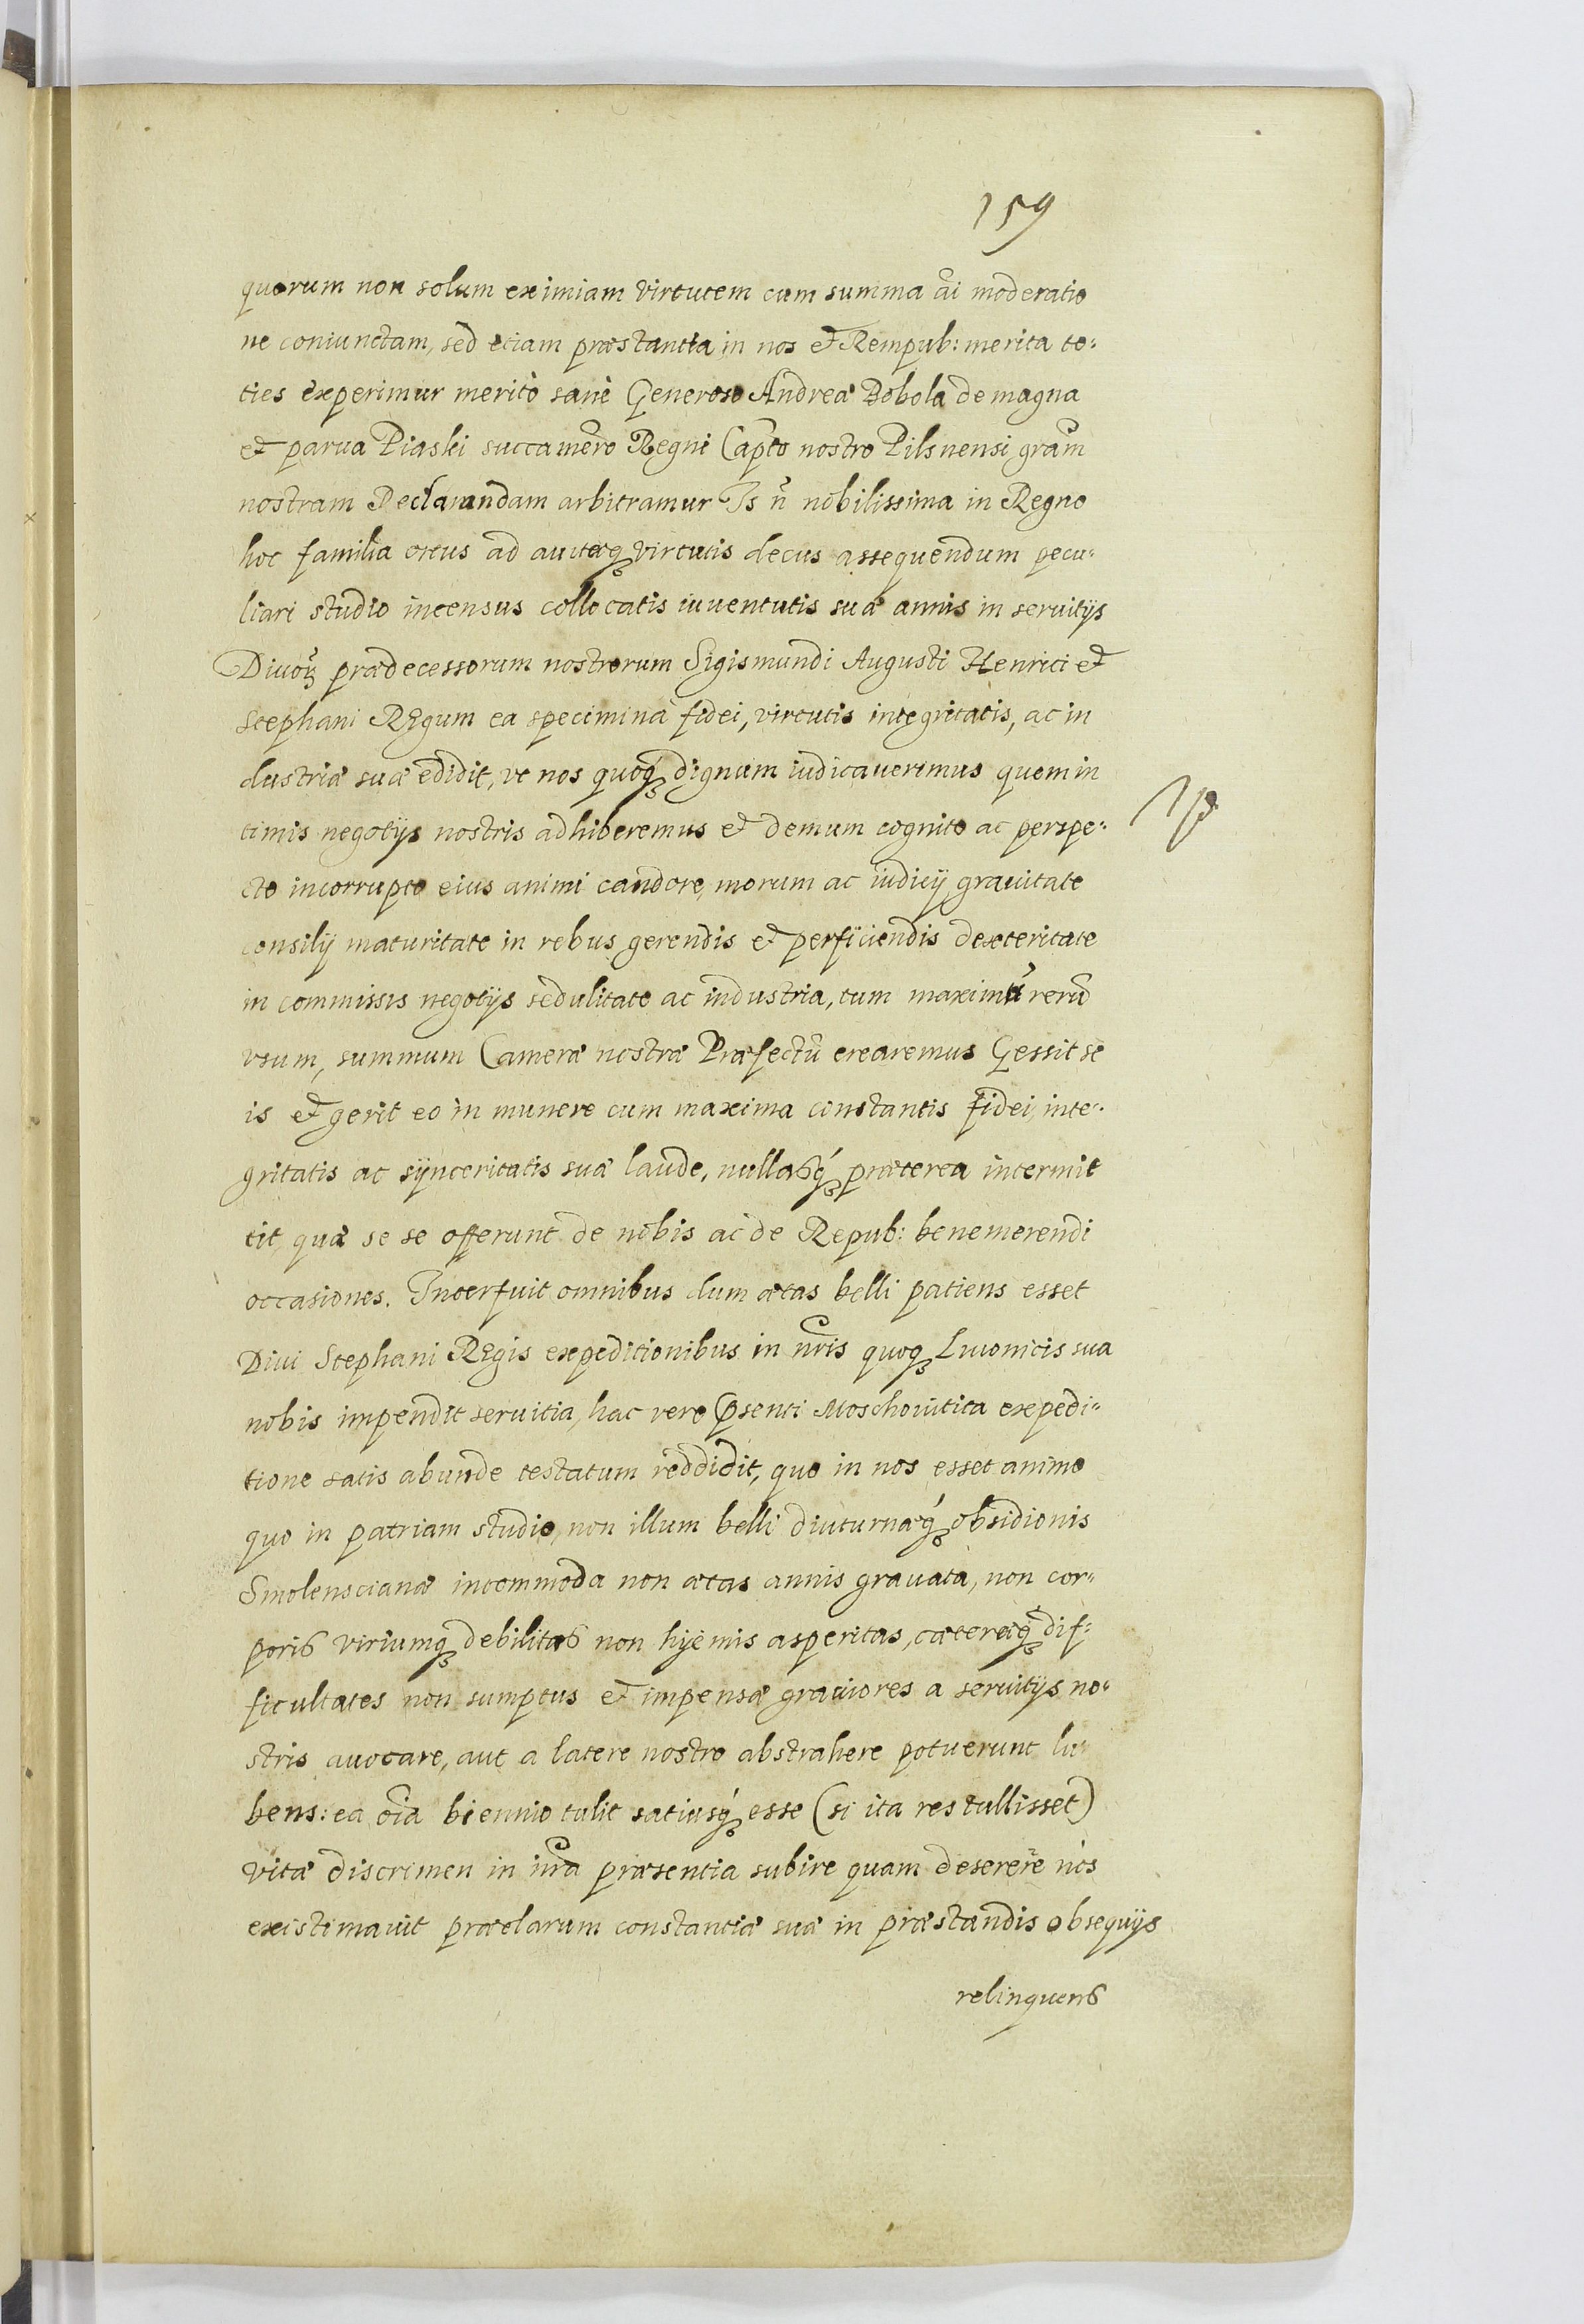 159
quorum non solum eximiam virtutem cum summa ãi moderatio
ne coniunctam, sed etiam præstantia in nos et Rempub: merita to-
ties experimur meritò sanè Generoso Andreæ Bobola de magna
et parua Piaski succamero Regni Capto nostro Pilsnensi gram
nostram Declarandam arbitramur Is n̄ nobilissima in Regno
hoc familia ortus ad auitæq virtutis decus assequendum pecu-
liari studio incensus collocatis iuuentutis suæ annis in seruitijs
Diuoꝝ prædecessorum nostrorum Sigismundi Augusti Henrici et
Stephani REgum ea specimina fidei, virtutis integritatis, ac in
dustriæ suæ edidit, vt nos quoq dignum iudicauerimus quem in
timis negotijs nostris adhiberemus et demum cognito ac perspe-
cto incorrupto eius animi candore, morum ac iudicij grauitate
consilij maturitate in rebus gerendis et perficiendis dexteritate
in commissis negotijs sedulitate ac industria, tum maximũ rerũ
vsum, summum Cameræ nostræ Præfectũ crearemus Gessit se
is et gerit eo in munere cum maxima constantis fidei, inte-
gritatis ac synceritatis suæ laude, nullasq præterea intermit
tit, quæ se se offerunt de nobis ac de Repub: benemerendi
occasiones. Interfuit omnibus dum ætas belli patiens esset
Diui Stephani REgis expeditionibus in nris quoq Liuonicis sua
nobis impendit seruitia, hac vero p̃senti Moschouitica expedi-
tione satis abunde testatum reddidit, quo in nos esset animo
quo in patriam studio, non illum belli diuturnæq obsidionis
Smolenscianæ incommoda non ætas annis grauata, non cor-
poris viriumq debilitas non hyemis asperitas, cæteræq dif-
ficultates non sumptus et impensæ grauiores a seruitijs no-
stris auocare, aut a latere nostro abstrahere potuerunt lu-
bens: ea oĩa biennio tulit satiusq esse (si ita res tullisset)
vitæ discrimen in nra præsentia subire quam deserere nos
existimauit præclarum constantiæ suæ in præstandis obsequijs
relinquens